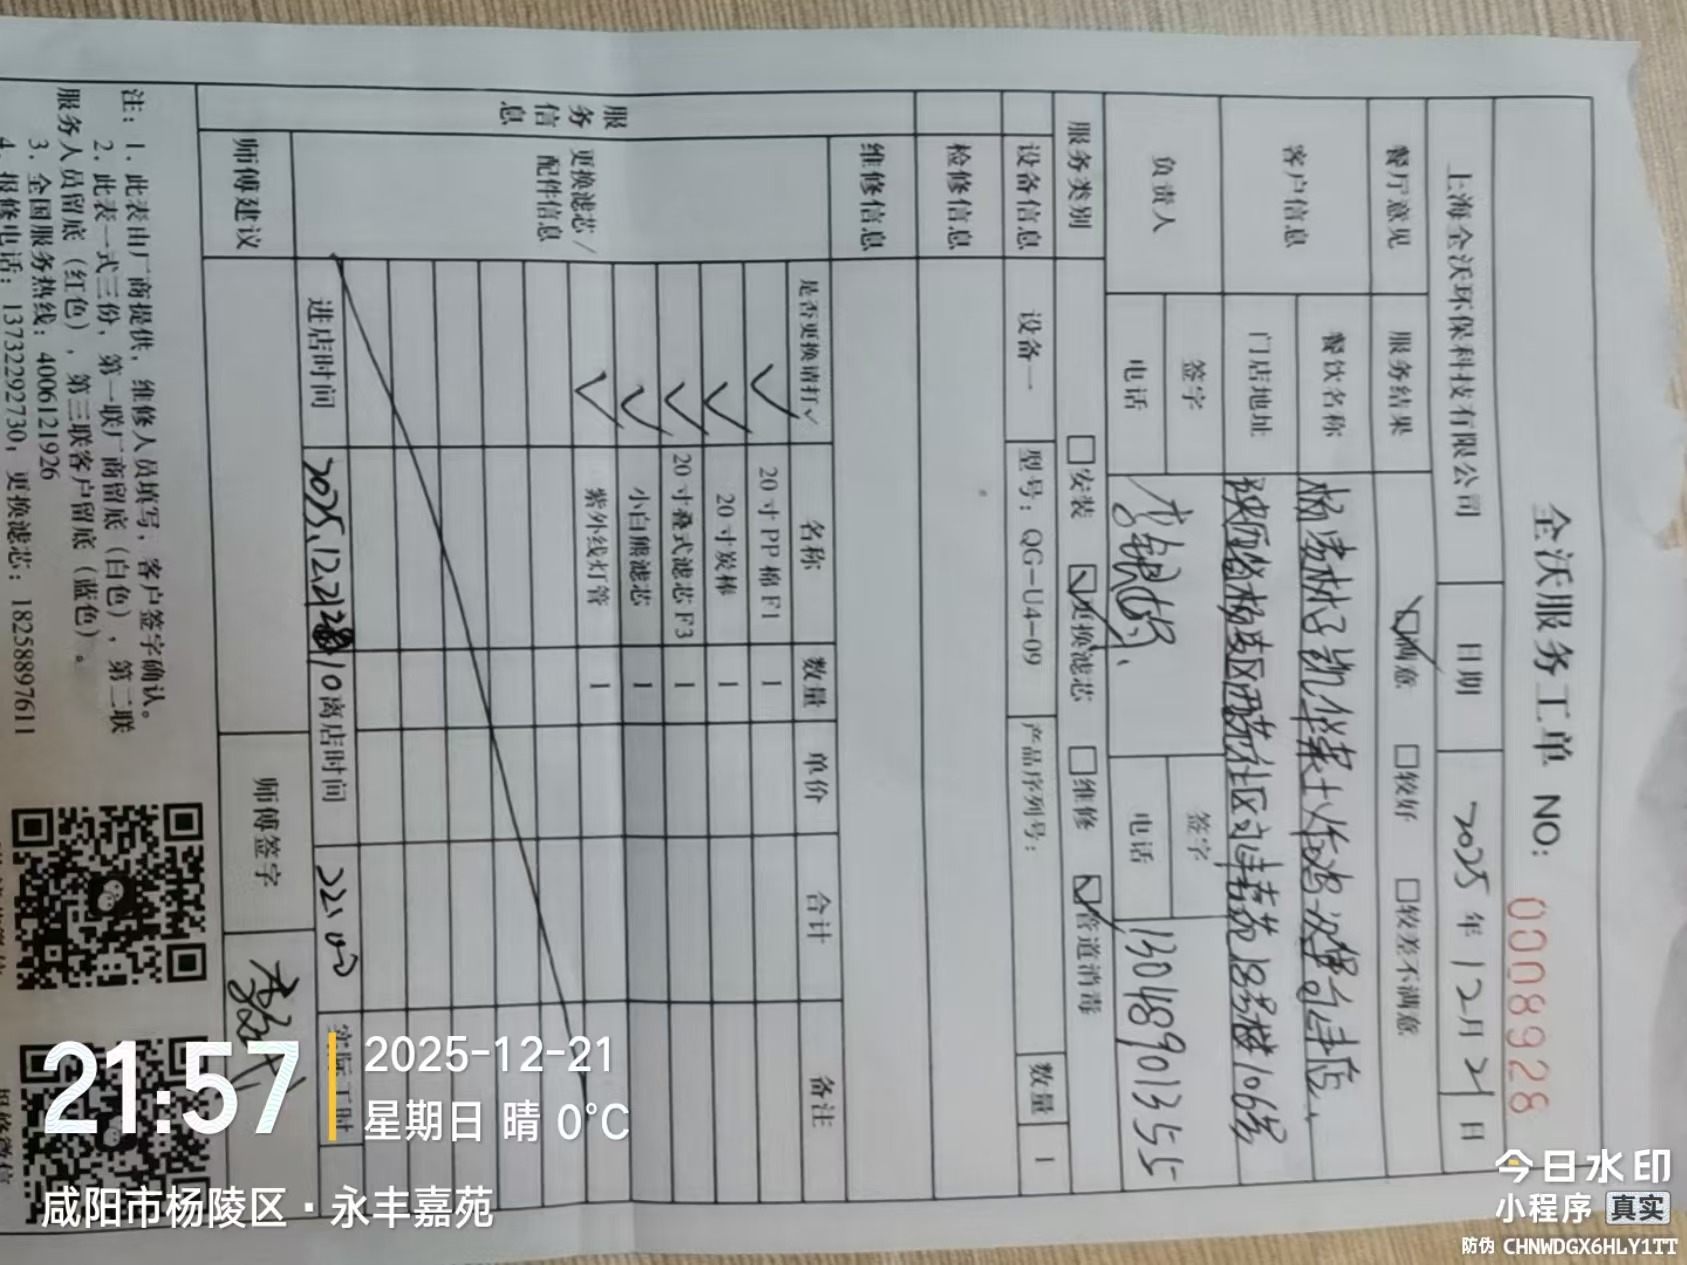 全沃服务工单 NO: 0008928
上海全沃环保科技有限公司 日期 2025年12月21日
餐厅意见 服务结果 ☑满意 □较好 □较差不满意
客户信息 餐饮名称
门店地址 陕西省杨陵区 社区永丰嘉苑18号楼106号
负责人 签字 签字
电话 电话 13048901355
服务类别 □安装 ☑更换滤芯 □维修 ☑管道消毒
设备信息 设备一 型号：QG-U4-09 产品序列号： 数量 1
检修信息
维修信息
服务信息
更换滤芯/配件信息
是否更换请打✓ 名称 数量 单价 合计 备注
✓ 20寸PP棉F1 1
✓ 20寸炭棒 1
✓ 20寸叠式滤芯F3 1
✓ 小白熊滤芯 1
✓ 紫外线灯管 1
进店时间 2025.12.21 离店时间 22:00 实际工时
师傅建议 师傅签字
注：1. 此表由厂商提供，维修人员填写，客户签字确认。
2. 此表一式三份，第一联厂商留底（白色），第二联
服务人员留底（红色），第三联客户留底（蓝色）。
3. 全国服务热线：4006121926
4. 报修电话：13732292730，更换滤芯：18258897611
21:57
2025-12-21
星期日 晴 0°C
咸阳市杨陵区·永丰嘉苑
今日水印
小程序 真实
防伪 CHNWDGX6HLY1TT